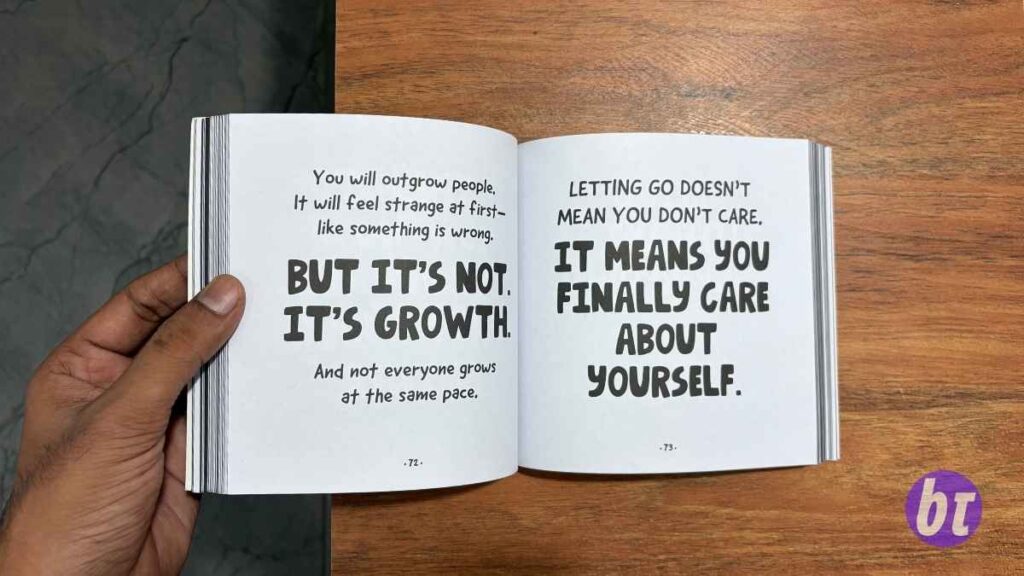 You will outgrow people.
It will feel strange at first—
like something is wrong.
BUT IT'S NOT.
IT'S GROWTH.
And not everyone grows
at the same pace.
·72·
LETTING GO DOESN'T
MEAN YOU DON'T CARE.
IT MEANS YOU
FINALLY CARE
ABOUT
YOURSELF.
·73·
bt